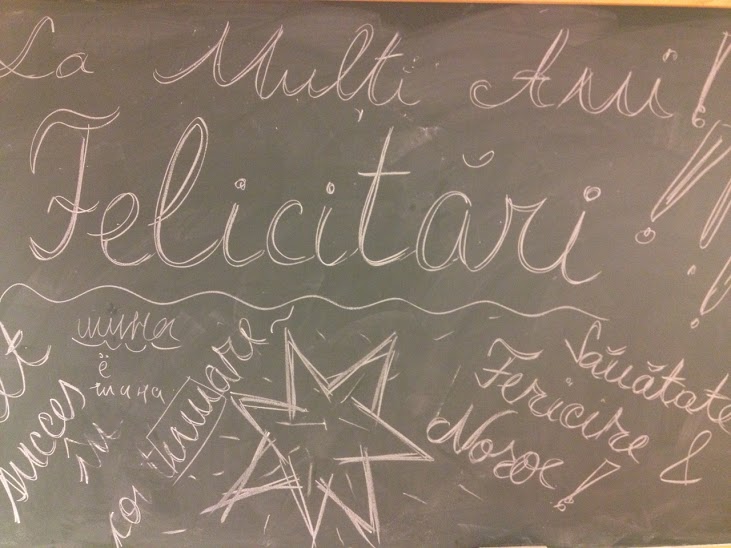 La Mulți Ani!
Felicitări!!!
шина
ё
шина
succes
în
continuare
Sănătate
Fericire &
Noroc!